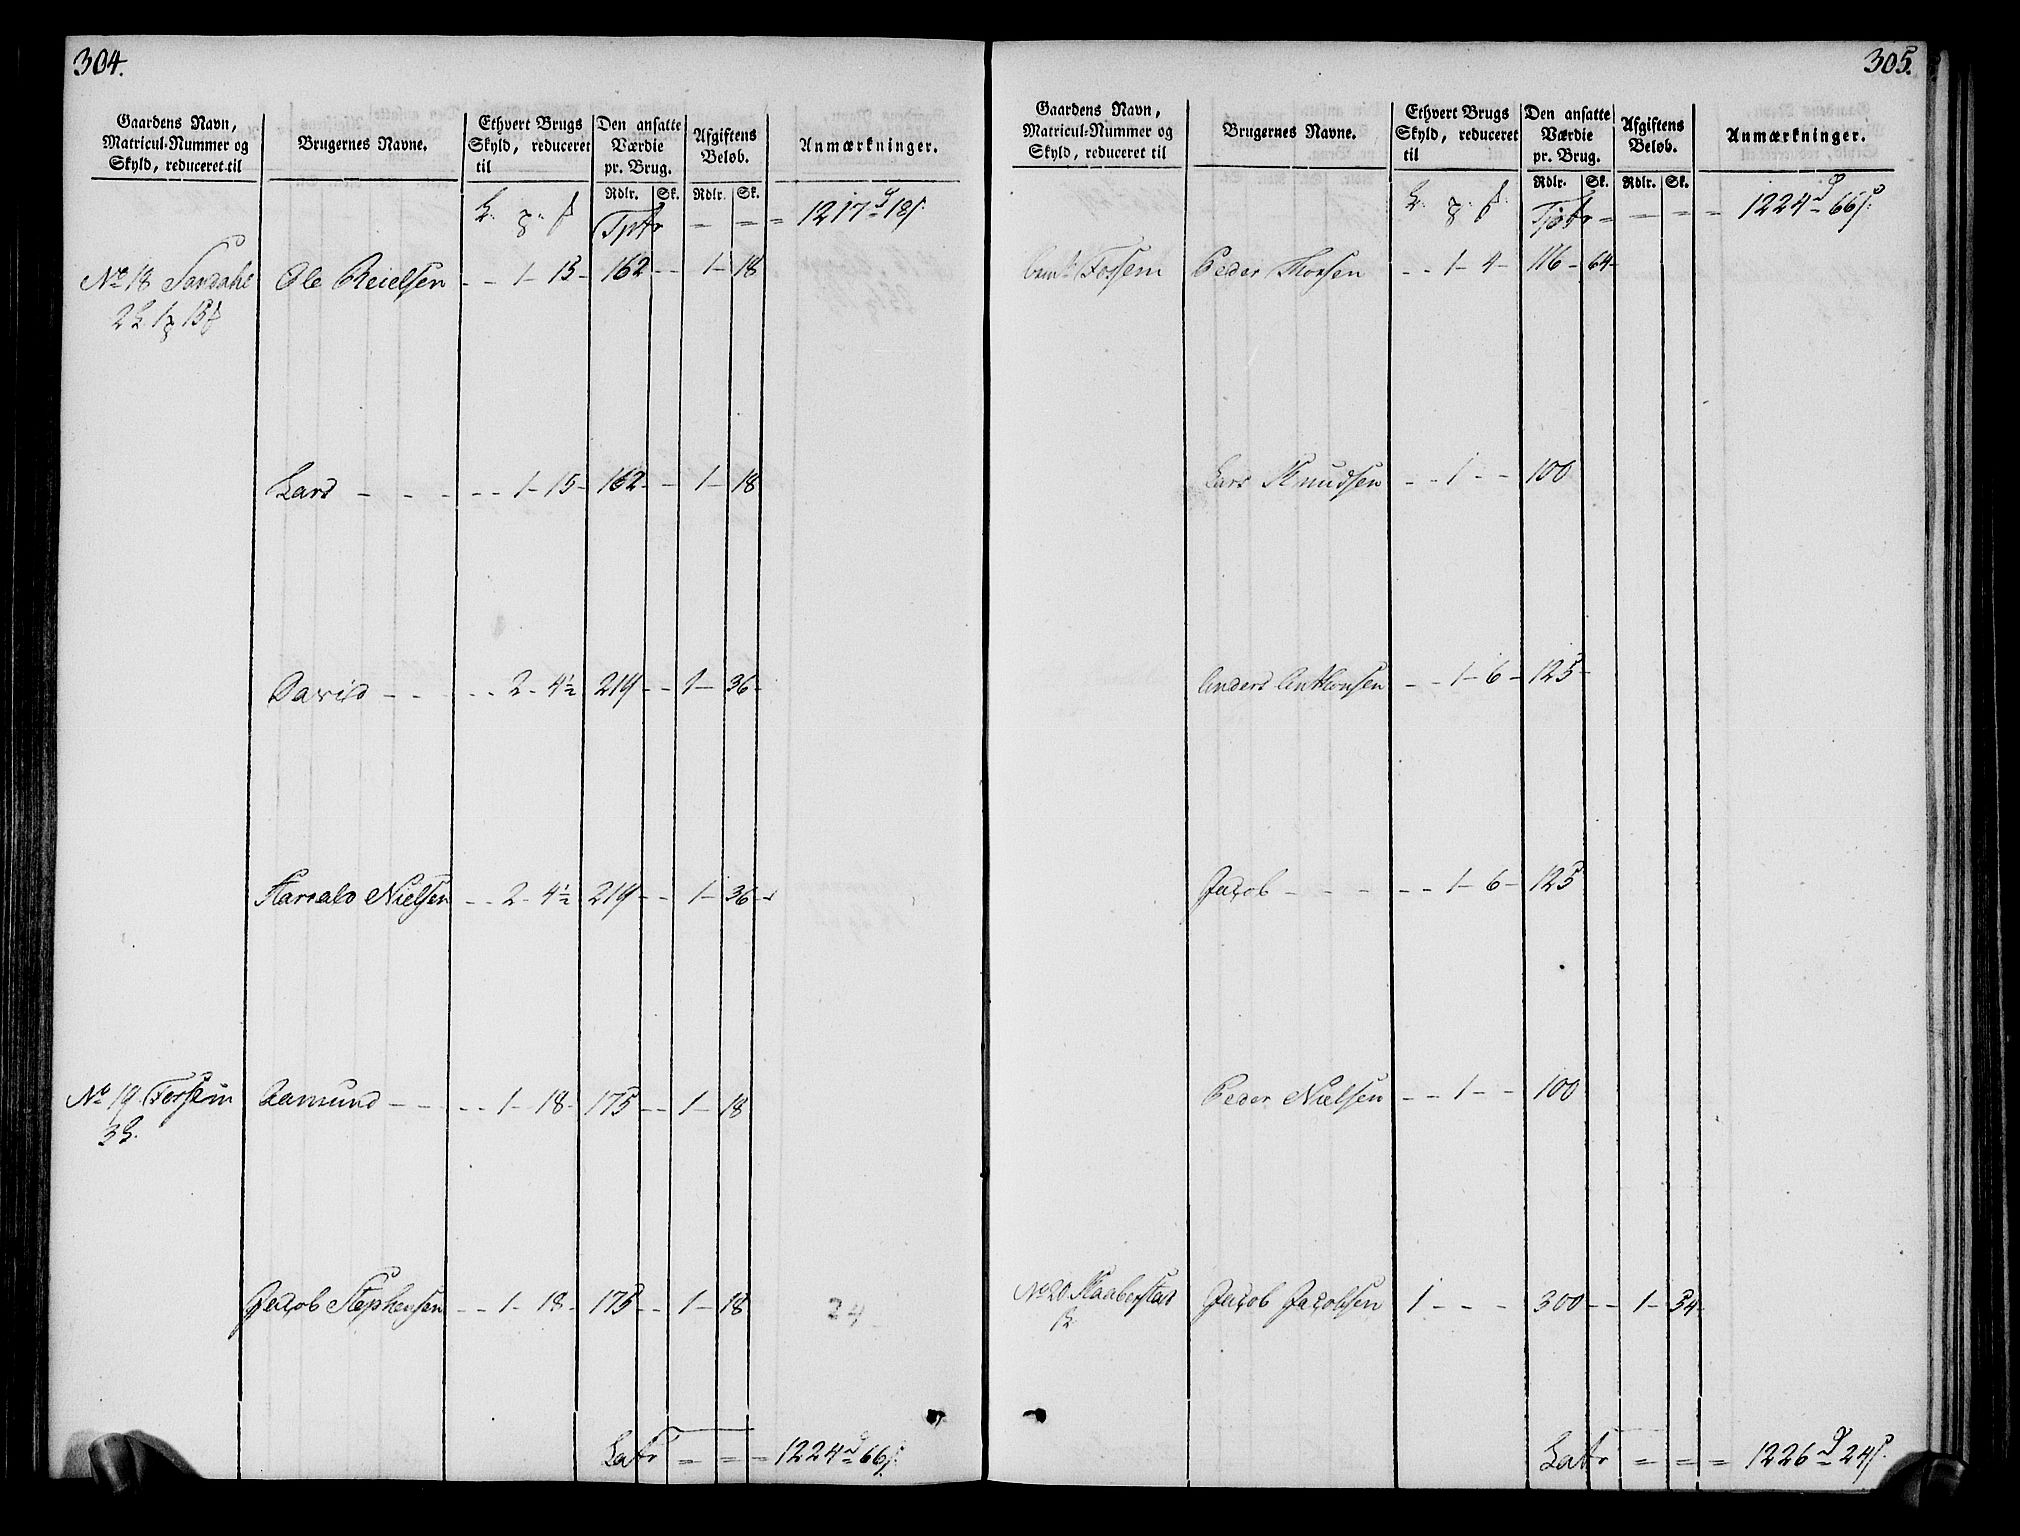 304.
Gaardens Navn,
Matricul-Nummer og
Skyld, reduceret til
Brugernes Navne.
Ethvert Brugs
Skyld, reduceret
til
Den ansatte
Værdie
pr. Brug.
Afgiftens
Beløb.
Anmærkninger.
Rdlr. Sk. Rdlr. Sk.
Tptr = = = 1217 18
No 18 Sandahl Ole Reielsen - - 1 - 15 - 162 - - 1 - 18
Lars - - - - - 1 - 15 - 162 - - 1 - 18
David - - - - 2 - 4½ 219 - - 1 - 36 -
Harrald Nielsen - - 2 - 4½ 219 - - 1 - 36 -
No 19 Fossem Aamund - - - - 1 - 18 - 175 - - 1 - 18
Jacob Stephensen - - 1 - 18 - 175 - - 1 - 18
24
Latr = = = 1224 66
305.
Gaardens Navn,
Matricul-Nummer og
Skyld, reduceret til
Brugernes Navne.
Ethvert Brugs
Skyld, reduceret
til
Den ansatte
Værdie
pr. Brug.
Afgiftens
Beløb.
Anmærkninger.
Rdlr. Sk. Rdlr. Sk.
Tptr = = = = 1224 66
Fossem Peder Thorsen - - 1 - 4 - 116 - 64 -
Lars Knudsen - - 1 - - 100
Anders Anthonsen - - 1 - 6 - 125 -
Jacob - - - - - 1 - 6 - 125
Peder Nielsen - - 1 - - 100
No 20 Skaaberstad Jacob Jacobsen 1 - - - 300 - - 1 - 54 -
Latr = = = 1226 24